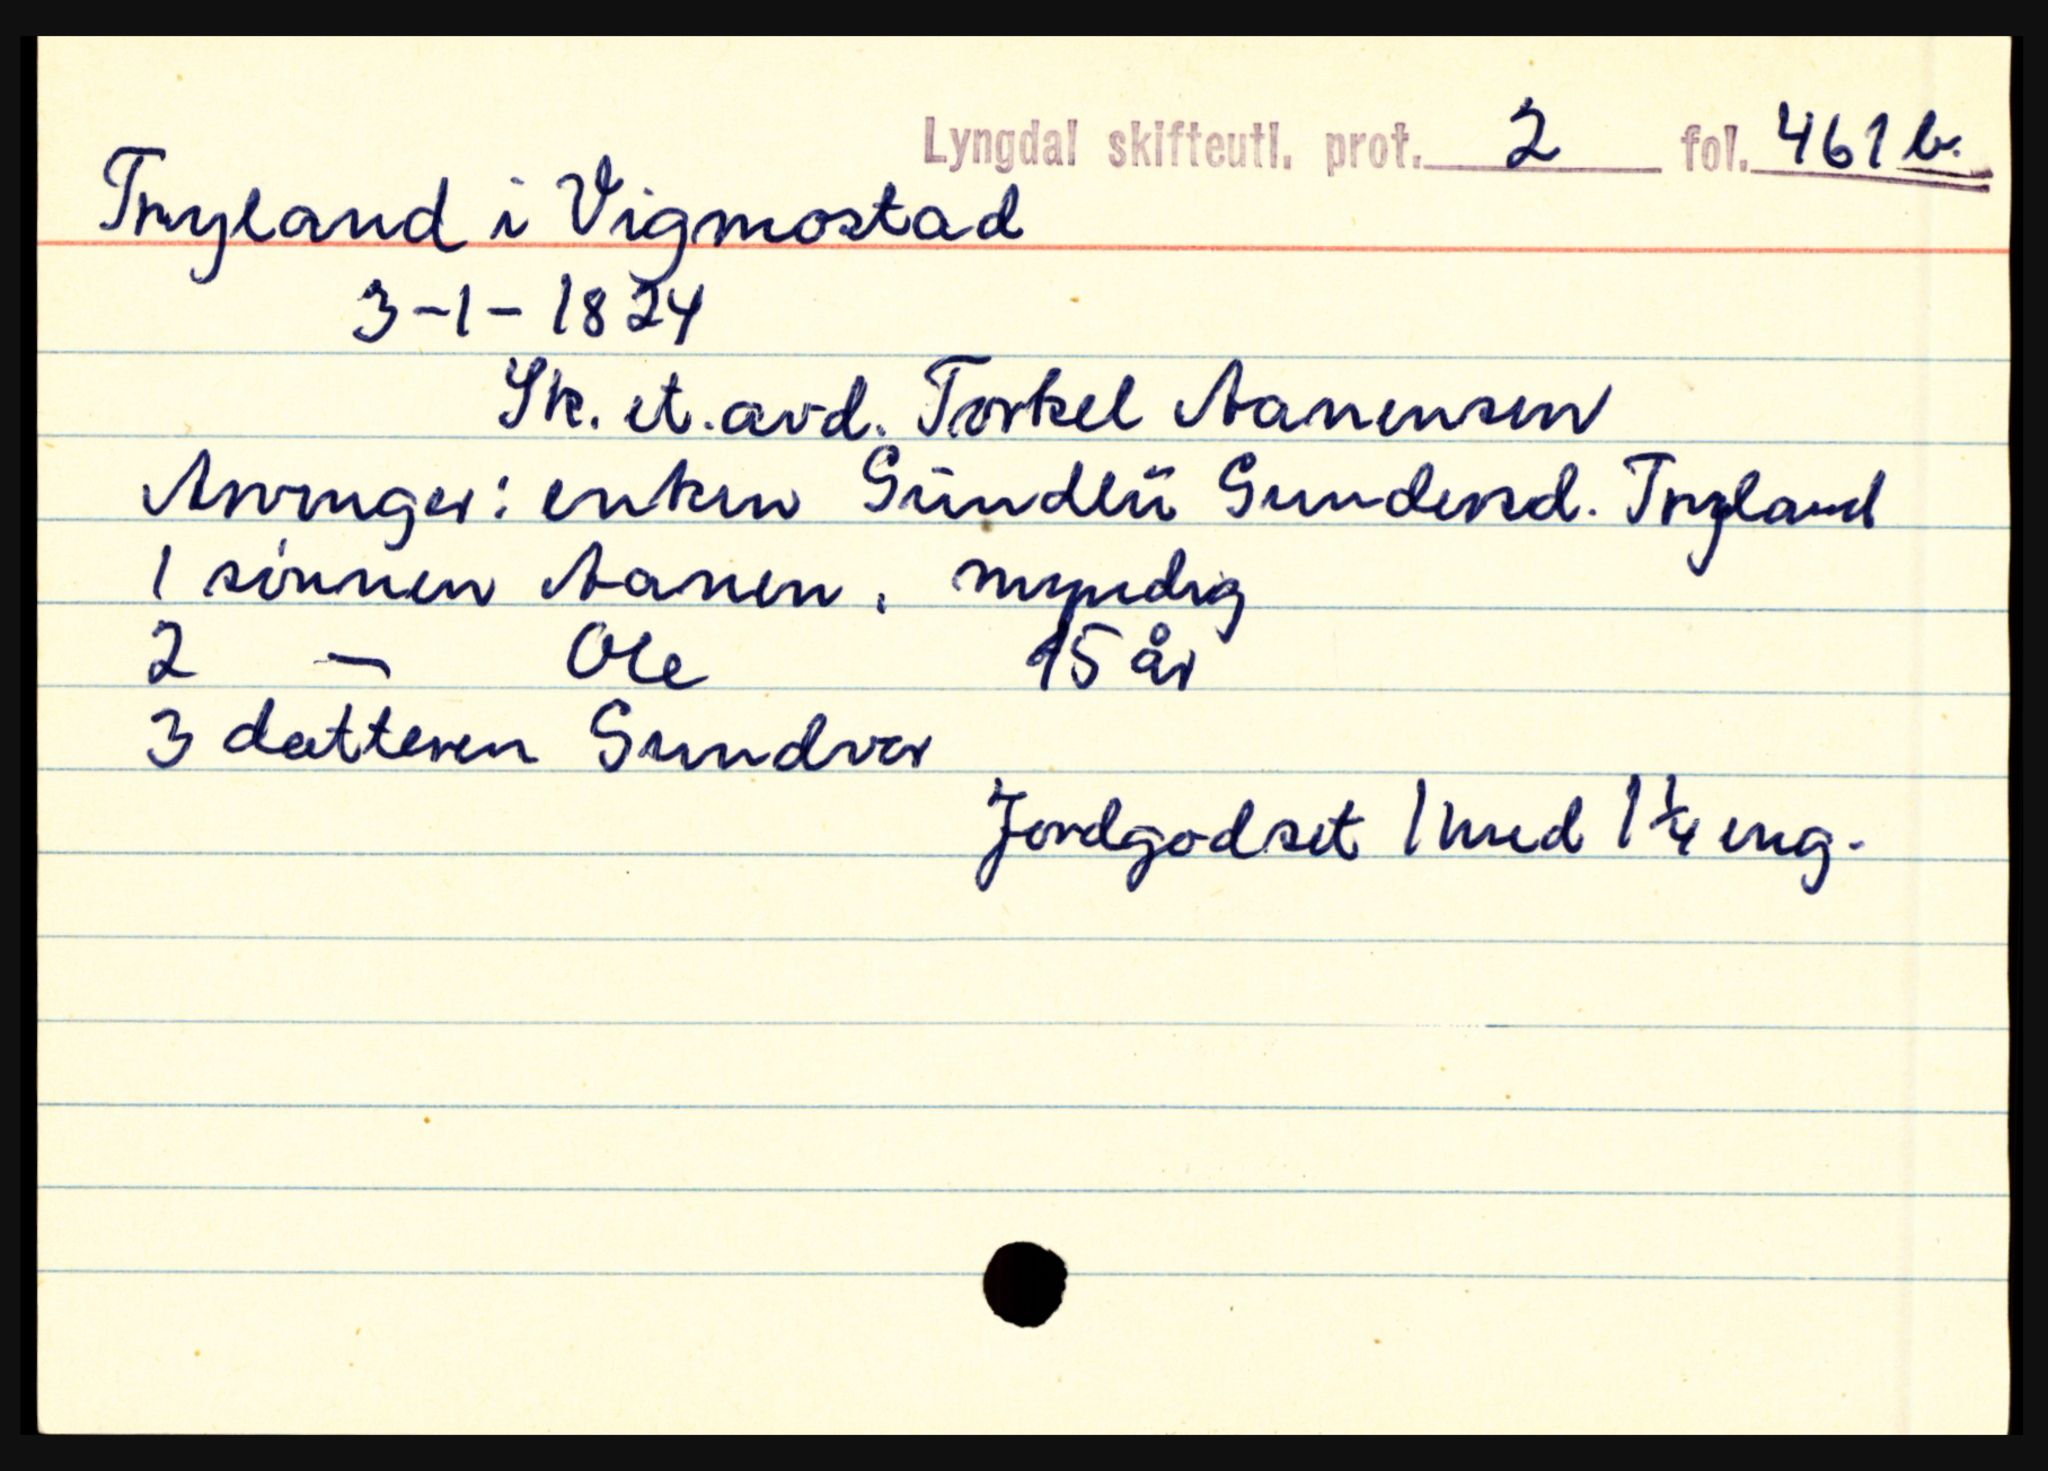 Lyngdal skifteutl. prot. 2 fol. 461 b.
Tryland i Vigmostad
3-1-1824
Sk. et. avd. Torkel Aanensen
Arvinger: enken Gündlü Gundersd. Tryland
1 sønnen Aanen, myndig
2 — Ole 15 år
3 datteren Gundvor
Jordgodset 1 hud 1 1/4 eng.